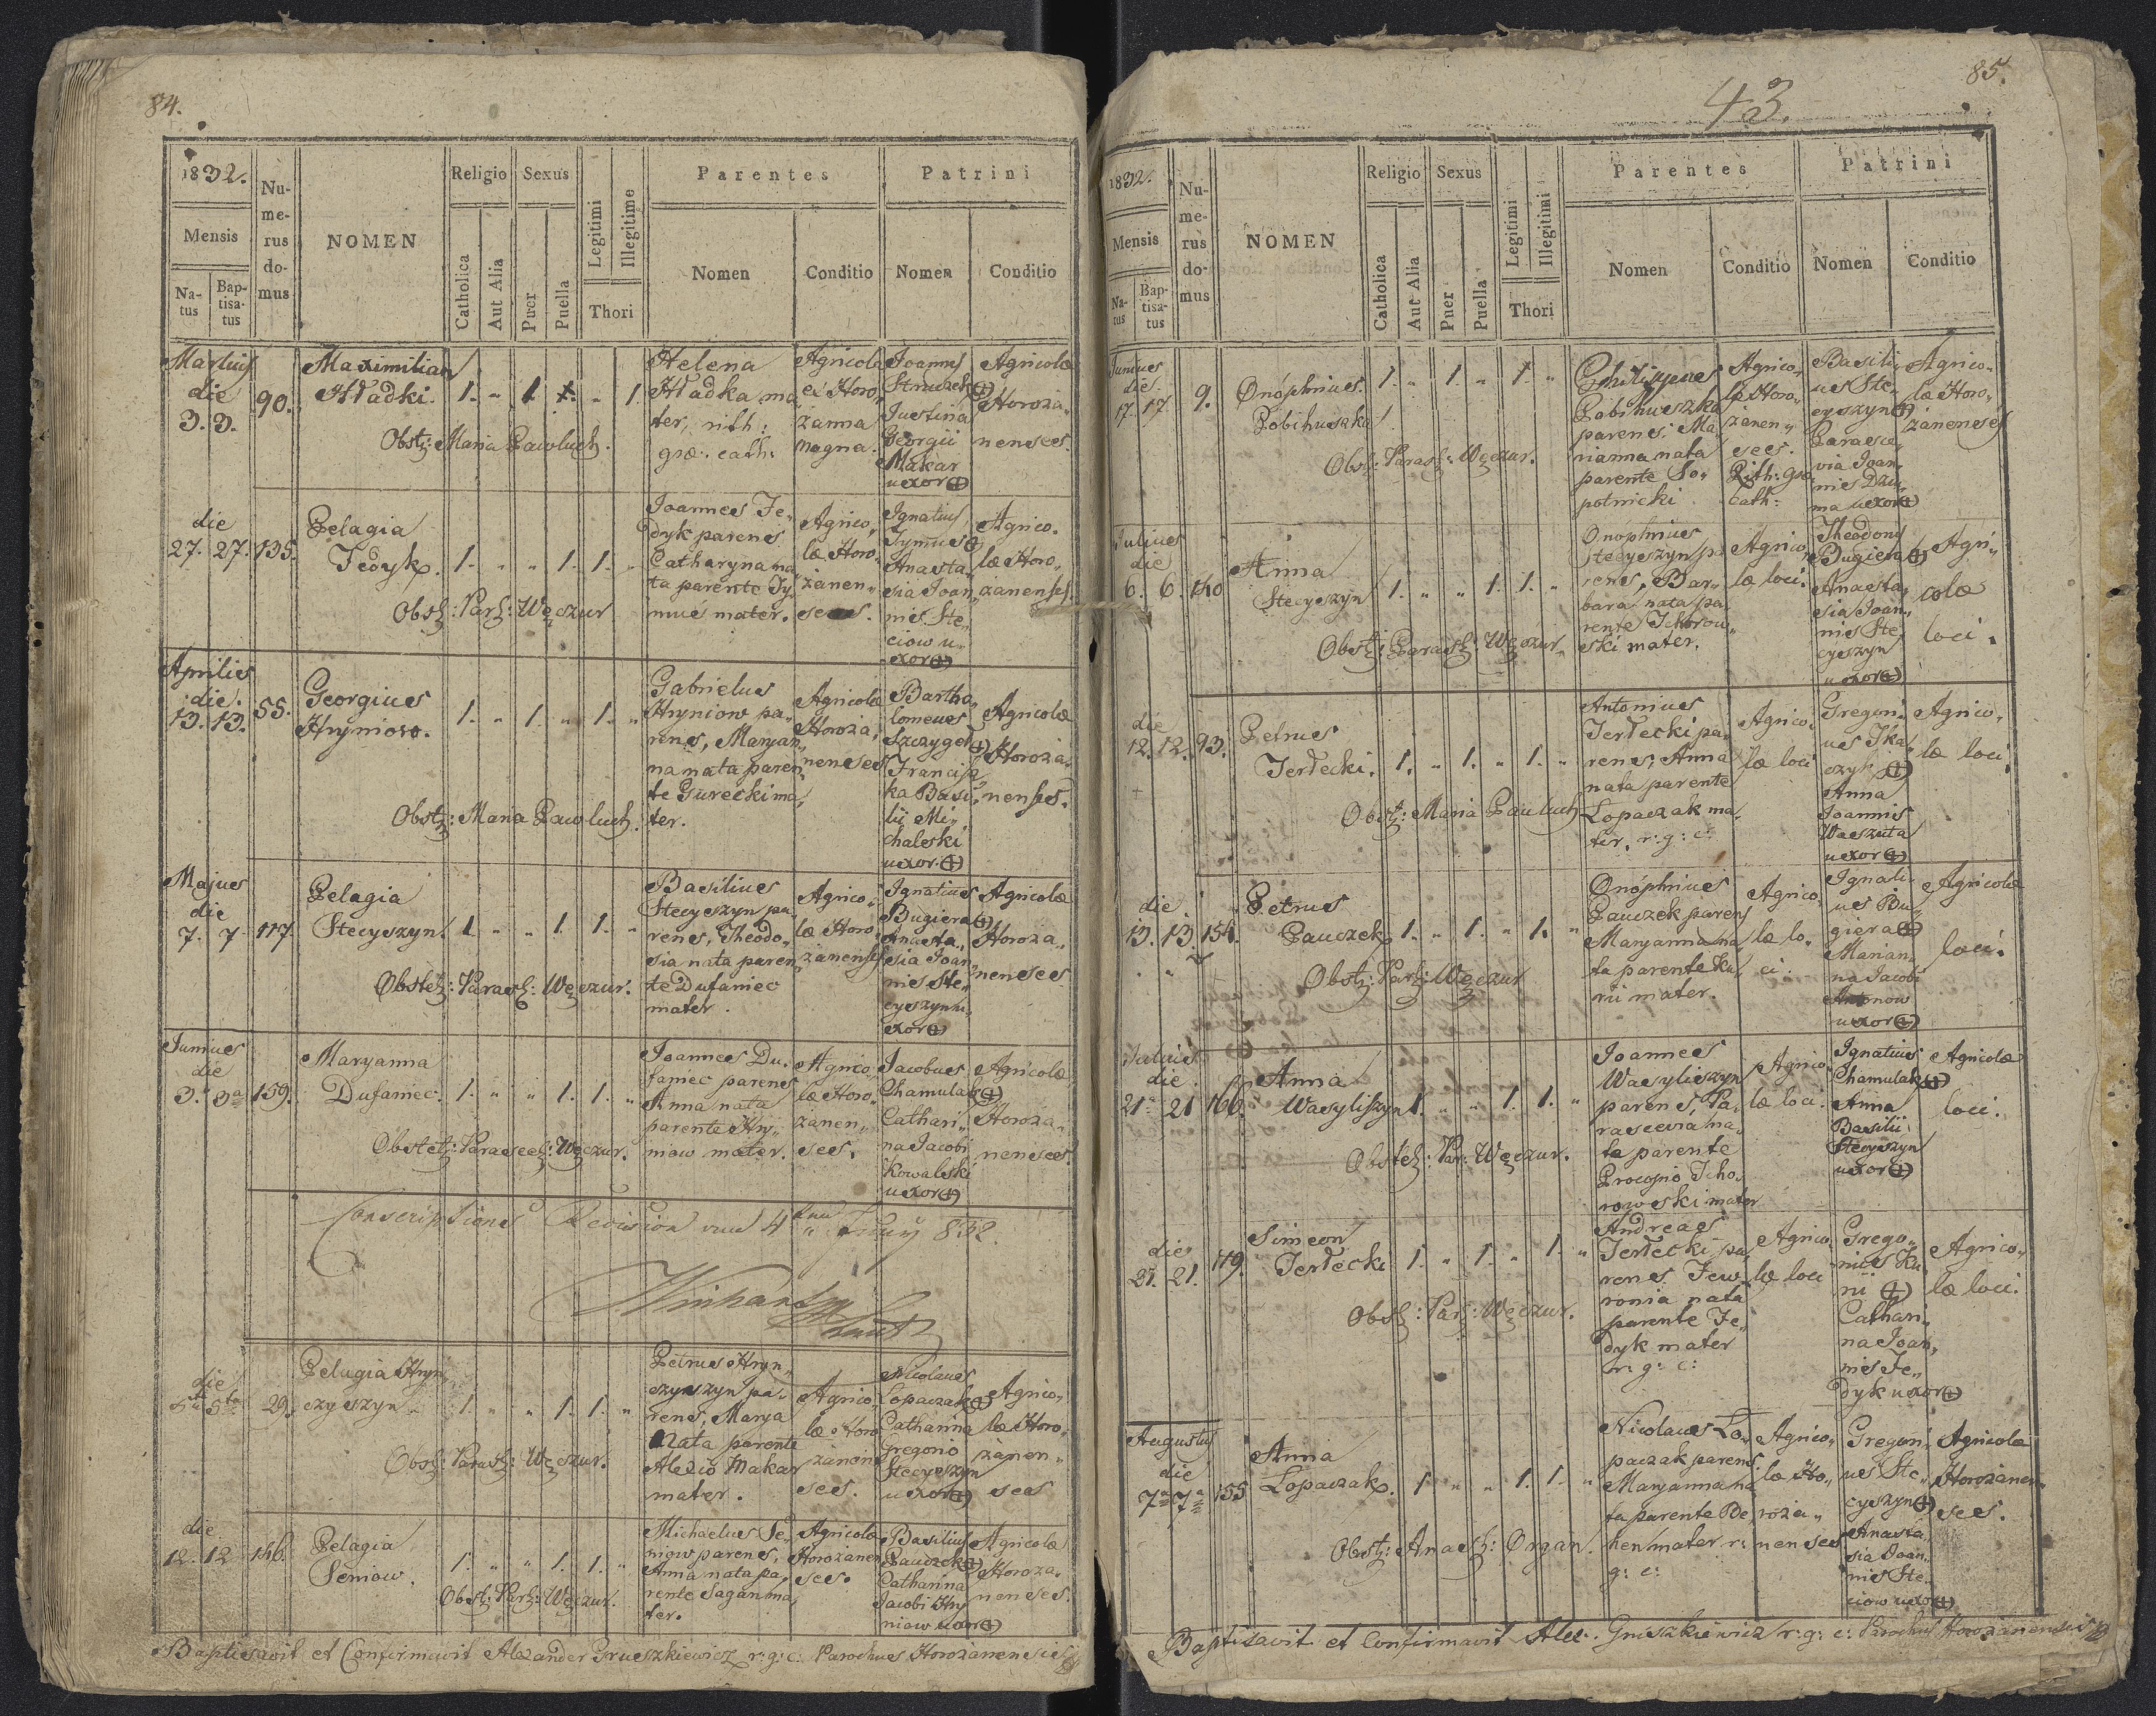 84.
1832.
Mensis
Na-
tus
Bap-
tisa-
tus
Nu-
me-
rus
do-
mus
NOMEN
Religio
Catholica
Aut Alia
Sexus
Puer
Puella
Legitimi
Illegitime
Thori
Parentes
Nomen
Conditio
Patrini
Nomen
Conditio
Martius
die
3. 3.
90.
Maximilian
Hładki.
1. " 1 " 1.
Obst: Maria Pawluch.
Helena
Hładka ma
ter, rith:
græ: cath:
Agricola
ex Horo,
zanna
magna.
Joannes
Justina
Georgii
Makar
uxor
Agricolæ
Horoza,
nenses.
die
27. 27.
135.
Pelagia
Jedyk.
1. " " 1. 1. "
Obst: Par: Węczur
Joannes Je,,
dyk parens
Catharyna na
ta parente Ty
mus mater.
Agrico,
læ Horo,
zanen,,
ses.
Ignatius
Tymus
Anasta,,
sia Joan,
nis Ste,
ciow u,
xor
Agrico.
læ Horo,,
zanenses.
Aprilis
die.
13. 13.
55.
Georgius
Hryniow.
1. " 1. " 1. "
Obst: Maria Pawluch.
Gabrielus
Hryniow pa,,
rens, Maryan,
na nata paren,
te Gurecki ma,
ter.
Agricolæ
Horoza,
nenses
Bartho,
lomeus
Szczygeł
Francis
ka Basi,
lii Mi,
chaleski
uxor.
Agricolæ
Horoza,
nenses.
Majus
die
7. 7
117.
Pelagia
Stecyszyn.
1. " " 1. 1. "
Obstet: Parasc: Węczur.
Basilius
Stecyszyn pa,
rens, Theodo,,
sia nata paren,
te Dufaniec
mater.
Agrico,
læ Horo,
zanenses
Ignatius
Bugiera
Anasta,,
sia Joan,
nis Ste,,
cyszyn u,
xor
Agricolæ
Horoza,,
nenses
Junius
die
3.a 3a
159.
Maryanna
Dufaniec.
1. " " 1. 1. "
Obstet: Parasce: Węczur.
Joannes Du,
faniec parens
Anna nata
parente Hry,,
niow mater.
Agrico,
læ Horo,
zanen,,
ses.
Jacobus
Chamulak
Cathari,,
na Jacobi
Kowalski
uxor
Agricolæ
Horoza,
nenses.
Conscriptions Revision 4 Juny 832.
die
5ta 5ta
29.
Pelagia Hryn,
czyszyn
1. " " 1. 1. "
Obst: Parasc: Węczur.
Petrus Hryn,,
czyszyn pa,,
rens, Marya
Nata parente
Alexio Makar
mater.
Agrico,
læ Horo
zanen,
ses.
Nicolaus
Łopaczak
Catharina
Gregorio
Stecyszyn
uxor
Agrico,,
læ Horo,
zanen,,
ses
die
12. 12
146.
Pelagia
Seniow.
1. " " 1. 1. "
Obst: Par: Węczur.
Michaelus Se,
niow parens,
Anna nata pa,
rente Sagan ma,
ter.
Agricolæ
Horozanen
ses.
Basilius
Pauczek
Catharina
Jacobi Hry
niow uxor
Agricolæ
Horoza,
nenses.
Baptisavit et Confirmavit Alexander Gruszkiewicz r: g: c: Parochus Horozanensis
85.
43.
1832.
Mensis
Na-
tus
Bap-
tisa-
tus
Nu-
me-
rus
do-
mus
NOMEN
Religio
Catholica
Aut Alia
Sexus
Puer
Puella
Legitimi
Illegitimi
Thori
Parentes
Nomen
Conditio
Patrini
Nomen
Conditio
Junius
die.
17. 17
9.
Onóphrius.
Pobihuszka
1. " 1. " 1. "
Obst: Parasc: Węczur.
Philippus
Pobihuszka
parens. Ma,
rianna nata
parente So,,
potnicki
Agrico,,
læ Horo,,
zanen,,
ses.
Rith: græ
cath:
Basili,
us Ste,,
cyszyn
Parasce,
via Joan,
nis Dzu,
ma uxor
Agrico,,
læ Horo,,
zanenses
Julius
die
6. 6.
140
Anna
Stecyszyn
1. " " 1. 1. "
Obst: Parasc: Węczur.
Onóphrius
Stecyszyn pa
rens, Bar,,
bara nata pa,
rente Ichorow,,
ski mater.
Agrico,
læ loci.
Theodorus
Bugiera
Anasta,
sia Joan,,
nis Ste,
cyszyn
uxor
Agri,,
colæ
loci.
die
12. 12.
93.
Petrus
Jerłecki.
1. " 1. " 1. "
Obst: Maria Pauluch
Antonius
Jerłecki pa,
rens; Anna
nata parente
Łopaczak ma,
ter, r: g: c:
Agrico,
læ loci
Gregori,
us Ska,
czyk
Anna
Joannis
Waszuta
uxor
Agrico,
læ loci.
die
13. 13.
154.
Petrus
Pauczek
1. " 1. " 1. "
Obst: Par: Węczur
Onóphrius
Pauczek parens
Maryanna na
ta parente Ku,
rii mater.
Agrico,
læ lo,,
ci.
Ignati,
us Bu,,
giera
Marian,
na Jacobi
Antonow
uxor
Agricolæ
loci.
Julius
die.
21a 21
166.
Anna
Wasyliszyn
1. " " 1. 1. "
Obstet: Par: Węczur.
Joannes
Wasyliszyn
parens, Pa,
rascevia na,
ta parente
Procopio Icho,
rowski mater
Agrico,
læ loci.
Ignatius
Chamulak
Anna
Basilii
Stecyszyn
uxor
Agricolæ
loci.
die
21. 21.
119.
Simeon
Jerłecki
1. " 1. " 1. "
Obst: Par: Węczur.
Andreas
Jerłecki pa,
rens. Jew,
ronia nata
parente Je,,
dyk mater
r: g: c:
Agrico,
læ loci
Grego,,
rius Ku
rii
Cathari,
na Joan,
nis Je,,
dyk uxor
Agrico,,
læ loci.
Augustus
die
7a 7a
155
Anna
Łopaczak.
1. " " 1. 1. "
Obst: Anast: Organ.
Nicolaus Ło,
paczak parens
Maryanna na
ta parente Be,
hen mater r:
g: c:
Agrico,,
læ Ho,
roza,,
nenses
Gregori,
us Ste,,
cyszyn
Anasta,
sia Joan,
nis Ste,
ciow uxor
Agricolæ
Horozanen,
ses.
Baptisavit et Confirmavit Alex: Gruszkiewicz r: g: c: Parochus Horozanensis